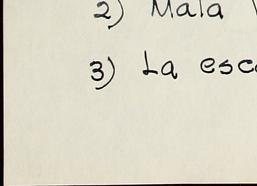 2) Mala
3) La esc